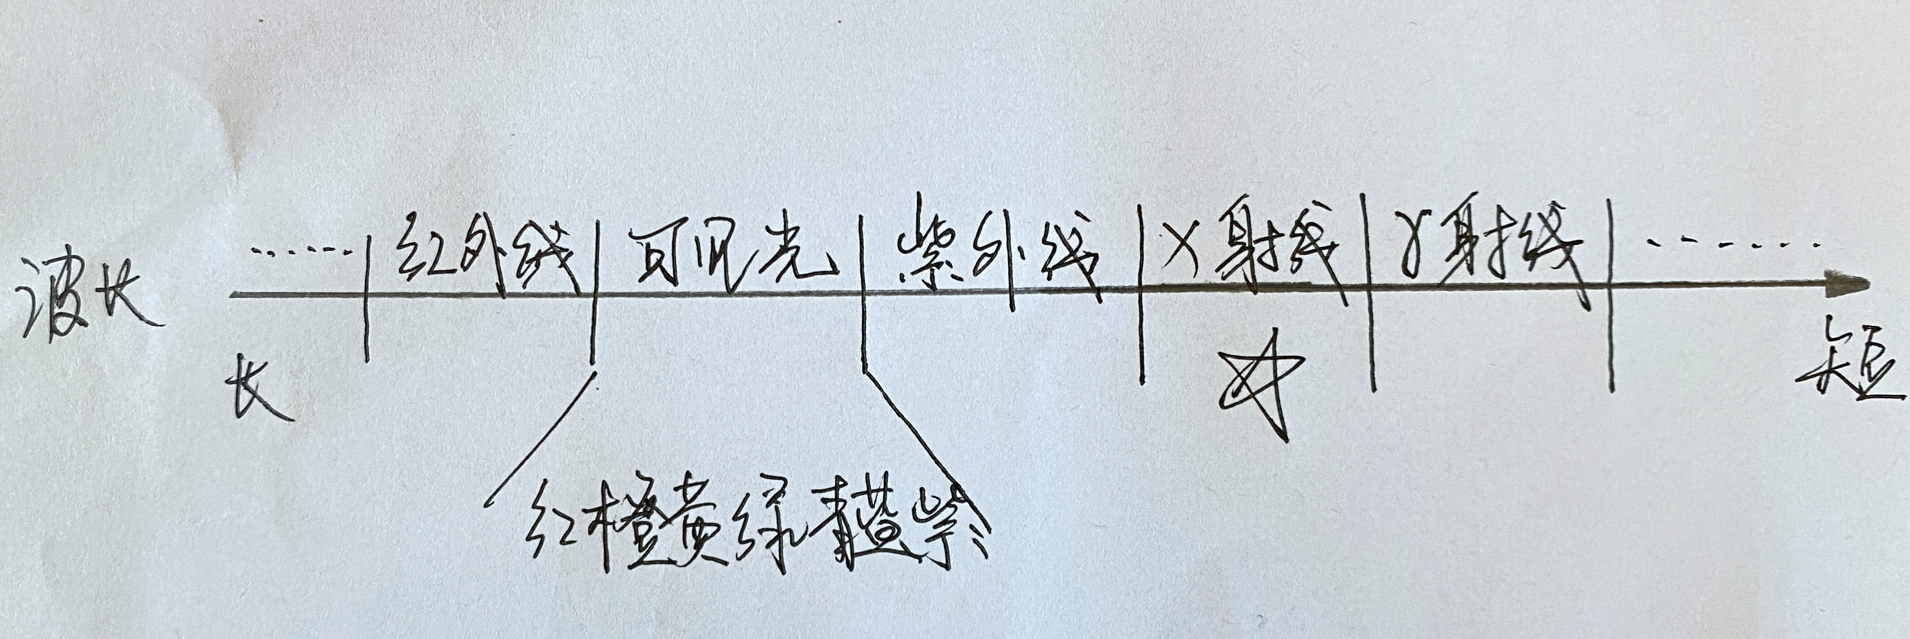 波长
…… 红外线 可见光 紫外线 X射线 γ射线 ……
长 短
红橙黄绿青蓝紫